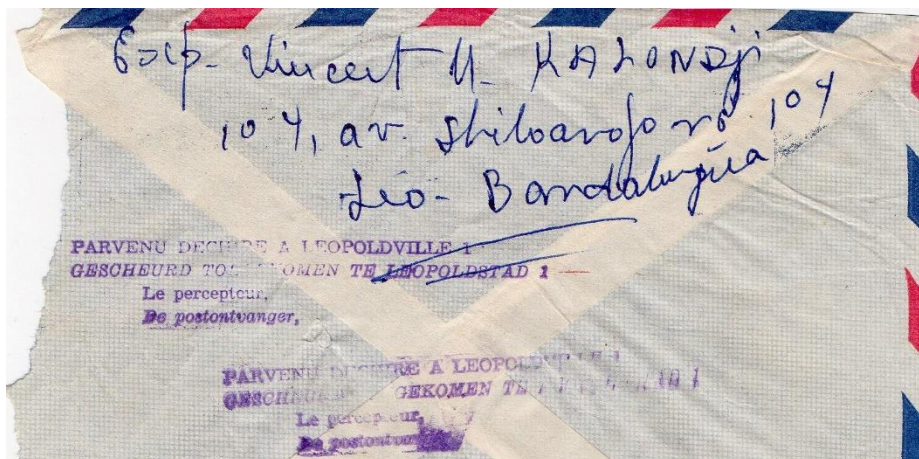 Exp. Vincent M. KALONDji
104, av. Shiloango no 104
Léo - Bandalungua
PARVENU DECHIRE A LEOPOLDVILLE 1
GESCHEURD TOEGEKOMEN TE LEOPOLDSTAD 1
Le percepteur,
De postontvanger,
PARVENU DECHIRE A LEOPOLDVILLE 1
GESCHEURD GEKOMEN TE
Le percepteur,
De postontvanger